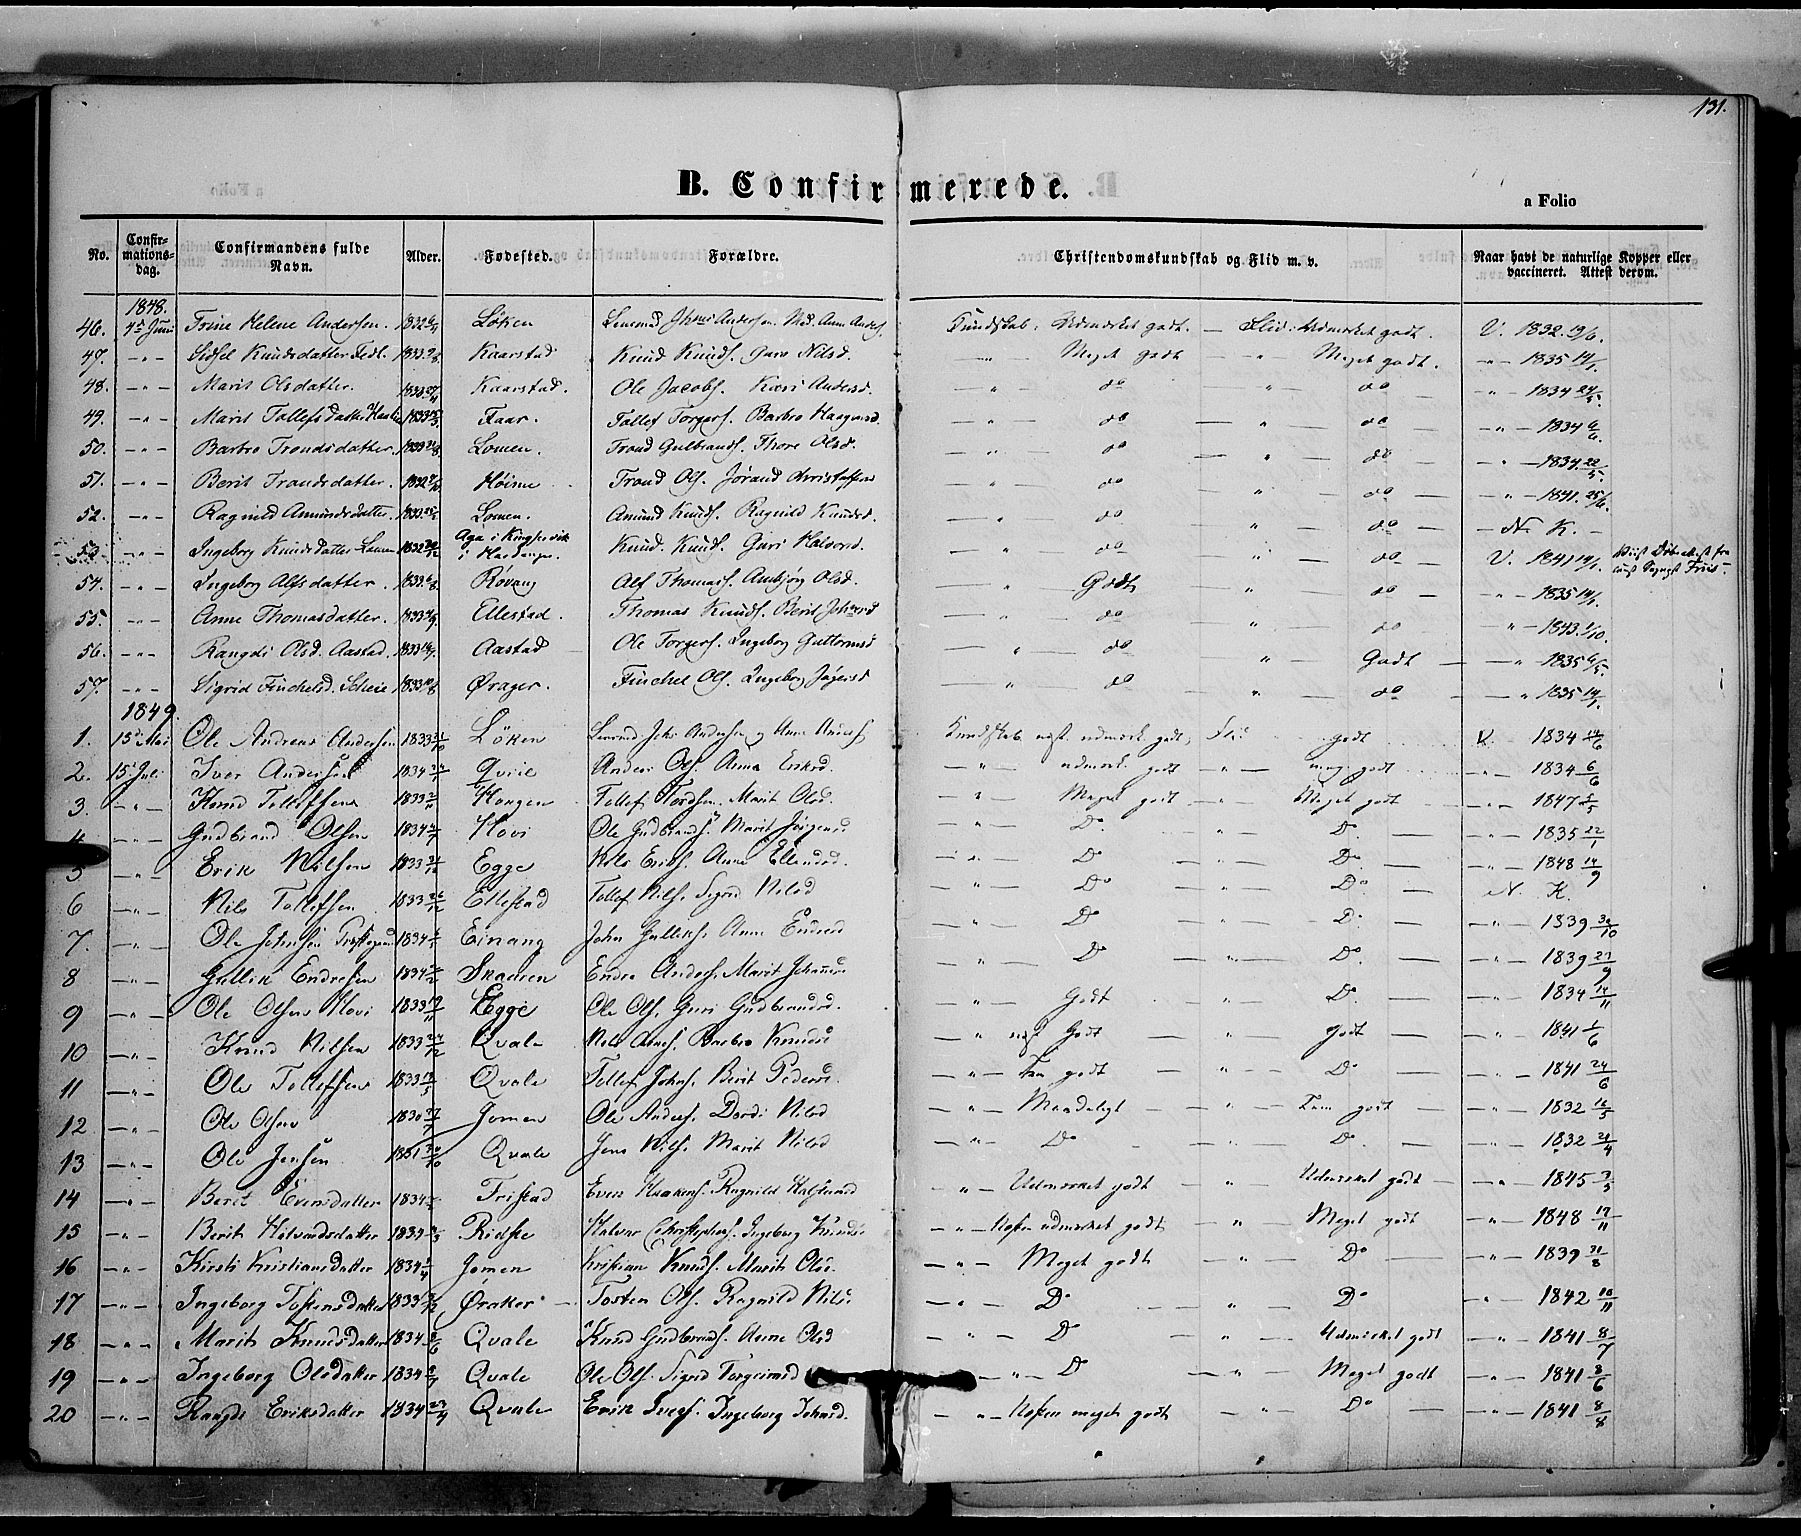 131.
B. Confirmerede.
a Folio
No. Confirmationsdag. Confirmandens fulde Navn. Alder. Fødested. Forældre. Christendomskundskab og Flid m. v. Naar havt de naturlige Kopper eller vaccineret. Attest derom.
1848.
46. Juni Trine Helene Andersen. 1832 Løken Anders. Kundskab: Udmærket godt. — Flid: Udmærket godt. V. 1832 19/6.
47. -"- Sidsel Knudsdatter 1833 Kaarstad Knud Knuds. Guro Nilsd. —"— Meget godt " Meget godt. -"- 1835 14/1.
48. -"- Marit Olsdatter. 1833 Kaarstad. Ole Jacobs. Kari Andersd. —"— do —"— do -"- 1834 24/5.
49. -"- Marit Tollefsdatter 1833 Faar. Tollef Torgers. Barbro Haagensd. —"— do —"— do -"- 1834 6/6.
50. -"- Barbro Trondsdatter. 1833 Lomen. Trond Gulbrands. Thore Olsd. —"— do —"— do -"- 1834 22/5.
51. -"- Berit Trondsdatter. 1832 Høime Trond Ols. Jørand Kristoffersd —"— do —"— do -"- 1841. 25/6.
52. -"- Ragnild Amundsdatter. 1833 Lomen. Amund Knuds. Ragnild Knudsd. —"— do —"— do — N. K. —
53. -"- Ingeborg Knudsdatter Lomen 1832 Aga i Kingservik i Hardanger. Knud Knuds. Guri Halvorsd. —"— do —"— do V. 1841 14/1.
54. -"- Ingeborg Alfsdatter. 1833 6/8. Røvang Alf Thomass. Ambjørg Olsd. —"— Godt —"— do -"- 1835 14/1.
55. -"- Anne Thomasdatter. 1833 Ellestad. Thomas Knuds. Berit Johansd —"— do —"— do -"- 1843. 1/10.
56. -"- Rangdi Olsd. Aastad. 1833 Aastad Ole Torgers. Ingeborg Guttormsd —"— do " Godt — -"- 1835 6/5.
57. -"- Sigrid Finchelsd. Scheie. 1833 Ørager. Finchel Ols. Ingeborg —"— do —"— do -"- 1835 14/1.
1849.
1. 15de Mai Ole Andreas Andersen 1833 21/10 Løken Anders Kundskab næst udmærk. godt, Flid godt V. 1834 14/6
2. 15. Juli Iver Andersen 1834 Qvile Anders Ols. Anna Eriksd. -"- udmærk. godt -"- meget godt -"- 1834 6/6
3. -"- Knud Tollefsen 1833 2/11 Haugen Tollef Tordsen. Marit Olsd. -"- Meget godt -"- Meget godt -"- 1847 2/5
4 -"- Gudbrand Olsen 1834 Hovi Ole Gudbrands. Marit Jørgensd -"- Do. -"- Do. -"- 1835 22/1
5 -"- Erik Nilsen 1833 Egge Nils Eriks. Anne Ellendsd. -"- Do -"- Do. -"- 1848 14/9
6 -"- Nils Tollefsen 1833 26/12 Ellestad Tollef Nils. Sigrid Nilsd -"- Do -"- Do. N. K.
7. -"- Ole Johnsen 1834 Einang John Gulliks. Anne Endresd -"- Do -"- Do. -"- 1839 30/10
8 -"- Gullik Endresen 1834 Snadren Endre Anders. Marit -"- Do -"- Do. -"- 1839 27/9
9 -"- Ole Olsen Hovi 1833 Egge Ole Ols. Guri Gudbrandsd. -"- Godt -"- Do. -"- 1834 14/11
10 -"- Knud Nilsen 1833 Qvale Nils Barbro Knudsd -"- næst Godt -"- Godt -"- 1841 1/6
11 -"- Ole Tollefsen 1833 13/5 Qvale Tollef Johns. Berit Pedersd. -"- Tem godt -"- Do -"- 1841 24/6
12 -"- Ole Olsen 1830 27/7 Jomen Ole Anders. Dordi Nilsd -"- Maadeligt -"- Tem godt -"- 1832 16/5
13 -"- Ole Jensen 1831 20/10 Qvale Jens Nils. Marit Nilsd -"- Do -"- Do. -"- 1832 21/4
14 -"- Berit Evensdatter 1834 Tristad Even Haakens. Ragnild -"- Udmærket godt -"- Udmærket godt -"- 1845 3/5
15 -"- Berit Halvardsdatter 1834 Ridste Halvar Christophers. Ingeborg Knuds. -"- Næsten udmærket godt -"- Meget godt -"- 1848 17/11
16 -"- Kirsti Kristiansdatter 1834 Jomen Kristian Knuds. Marit Ols. -"- Meget godt -"- Do -"- 1839 31/8
17 -"- Ingeborg Tostensdatter 1833 Øraker Tosten Ols. Ragnild Nils. -"- Do -"- Do -"- 1842 10/11
18 -"- Marit Knudsdatter 1834 Qvale Knud Gudbrands. Anne Olsd -"- Do -"- Udmærket godt -"- 1841 8/7
19 -"- Ingeborg Olsdatter 1834 Qvale Ole Ols. Sigrid Torgeirsd -"- Do -"- Meget godt -"- 1841 8/6
20 -"- Rangdi Eriksdatter 1834 23/4 Qvale Erik Ivers. Ingeborg Johnsd. -"- Næsten meget godt -"- Do -"- 1841 8/8